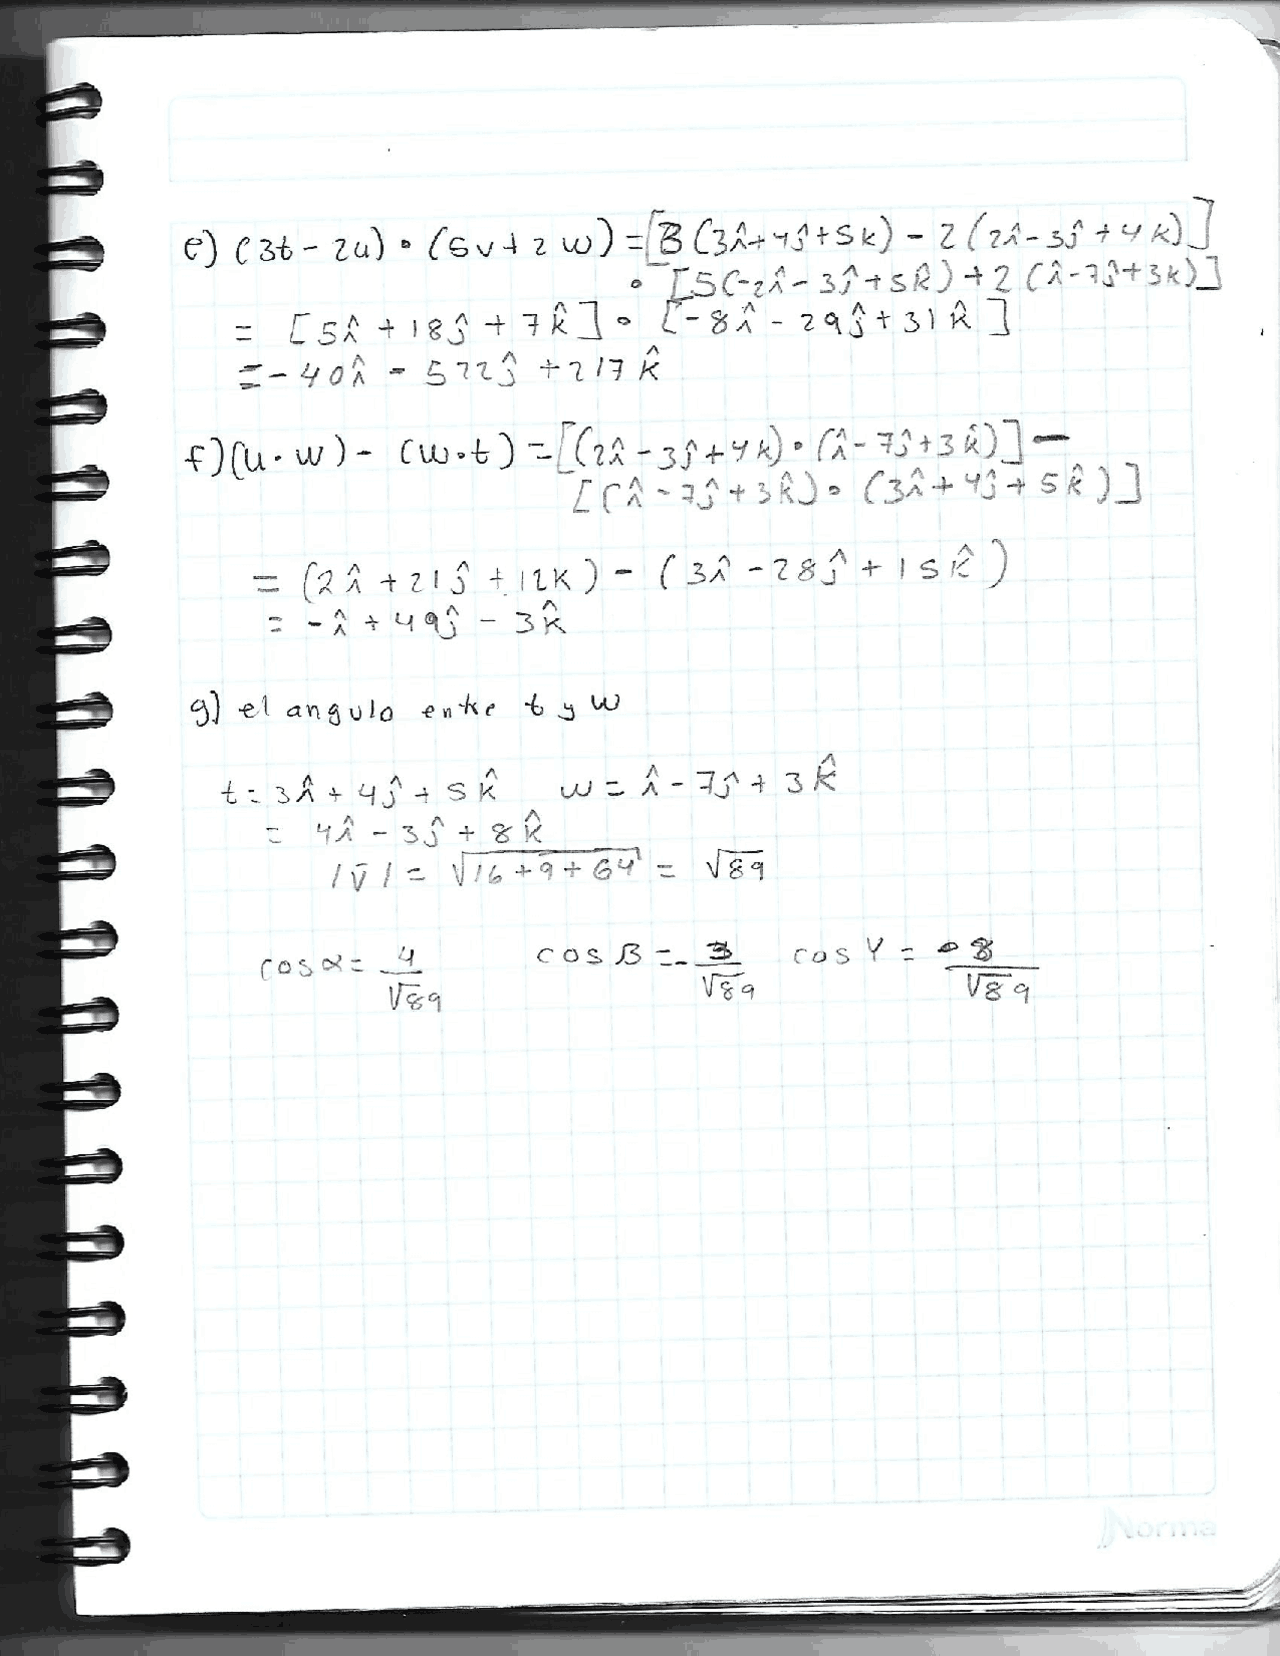 e) (3t - 2u) • (5v + 2w) = [3(3î + 4ĵ + 5k) - 2(2î - 3ĵ + 4k)]
• [5(-2î - 3ĵ + 5k̂) + 2(î - 7ĵ + 3k)]
= [5î + 18ĵ + 7k̂] • [-8î - 29ĵ + 31k̂]
= -40î - 522ĵ + 217k̂
f) (u • w) - (w • t) = [(2î - 3ĵ + 4k) • (î - 7ĵ + 3k̂)] -
[(î - 7ĵ + 3k̂) • (3î + 4ĵ + 5k̂)]
= (2î + 21ĵ + 12k) - (3î - 28ĵ + 15k̂)
= -î + 49ĵ - 3k̂
g) el angulo entre t y w
t = 3î + 4ĵ + 5k̂ w = î - 7ĵ + 3k̂
= 4î - 3ĵ + 8k̂
|v̄| = √16 + 9 + 64 = √89
cos α = 4/√89 cos β = -3/√89 cos γ = 8/√89
Norma